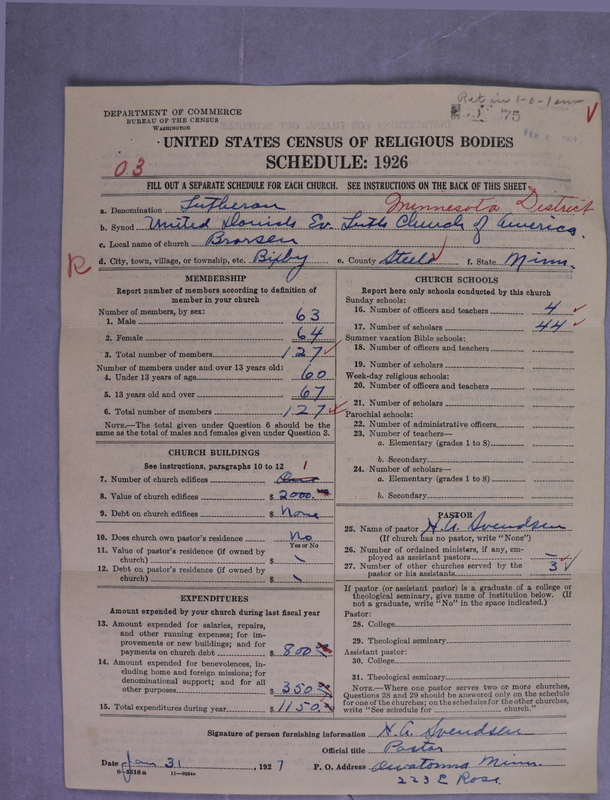 75
DEPARTMENT OF COMMERCE
BUREAU OF THE CENSUS
WASHINGTON
UNITED STATES CENSUS OF RELIGIOUS BODIES
SCHEDULE: 1926
03
FILL OUT A SEPARATE SCHEDULE FOR EACH CHURCH. SEE INSTRUCTIONS ON THE BACK OF THIS SHEET
a. Denomination Lutheran Minnesota District
b. Synod United Danish Ev. Luth Church of America.
c. Local name of church
R d. City, town, village, or township, etc. Bixby e. County Steele f. State Minn.
MEMBERSHIP
Report number of members according to definition of member in your church
Number of members, by sex:
1. Male 63
2. Female 64
3. Total number of members 127
Number of members under and over 13 years old:
4. Under 13 years of age 60
5. 13 years old and over 67
6. Total number of members 127
NOTE.—The total given under Question 6 should be
the same as the total of males and females given under Question 3.
CHURCH BUILDINGS
See instructions, paragraphs 10 to 12
7. Number of church edifices 1
8. Value of church edifices $ 2000.
9. Debt on church edifices $ None
10. Does church own pastor's residence No
Yes or No
11. Value of pastor's residence (if owned by
church) $
12. Debt on pastor's residence (if owned by
church) $
EXPENDITURES
Amount expended by your church during last fiscal year
13. Amount expended for salaries, repairs,
and other running expenses; for im-
provements or new buildings; and for
payments on church debt $ 800
14. Amount expended for benevolences, in-
cluding home and foreign missions; for
denominational support; and for all
other purposes $ 350
15. Total expenditures during year $ 1150.
CHURCH SCHOOLS
Report here only schools conducted by this church
Sunday schools:
16. Number of officers and teachers 4
17. Number of scholars 44
Summer vacation Bible schools:
18. Number of officers and teachers
19. Number of scholars
Week-day religious schools:
20. Number of officers and teachers
21. Number of scholars
Parochial schools:
22. Number of administrative officers
23. Number of teachers—
a. Elementary (grades 1 to 8)
b. Secondary
24. Number of scholars—
a. Elementary (grades 1 to 8)
b. Secondary
PASTOR
25. Name of pastor H. A. Svendsen
(If church has no pastor, write "None")
26. Number of ordained ministers, if any, em-
ployed as assistant pastors –
27. Number of other churches served by the
pastor or his assistants 3
If pastor (or assistant pastor) is a graduate of a college or
theological seminary, give name of institution below. (If
not a graduate, write "No" in the space indicated.)
Pastor:
28. College
29. Theological seminary
Assistant pastor:
30. College
31. Theological seminary
NOTE.—Where one pastor serves two or more churches,
Questions 28 and 29 should be answered only on the schedule
for one of the churches; on the schedules for the other churches,
write "See schedule for church."
Signature of person furnishing information H. A. Svendsen
Official title Pastor
Date Jan 31, 1927 P. O. Address Owatonna Minn.
223 E Rose.
8-5518a